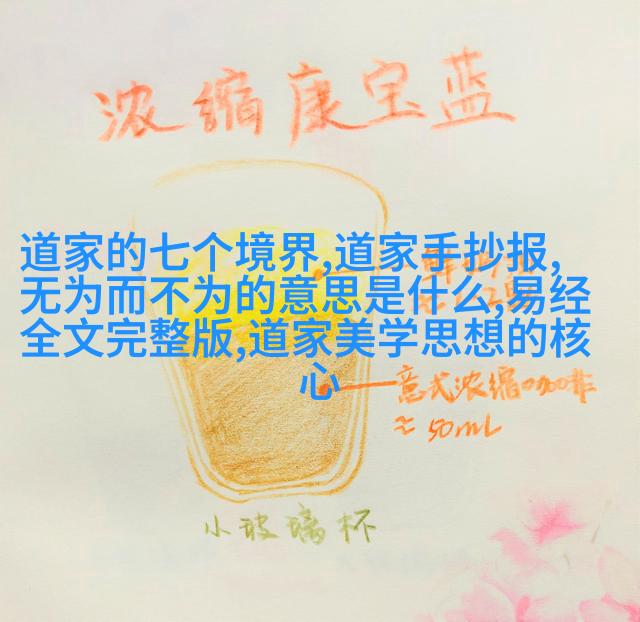 浓缩康宝蓝
道家的七个境界,道家手抄报,
无为而不为的意思是什么,易经
全文完整版,道家美学思想的核
心
意式浓缩咖啡
≈50mL
小玻璃杯